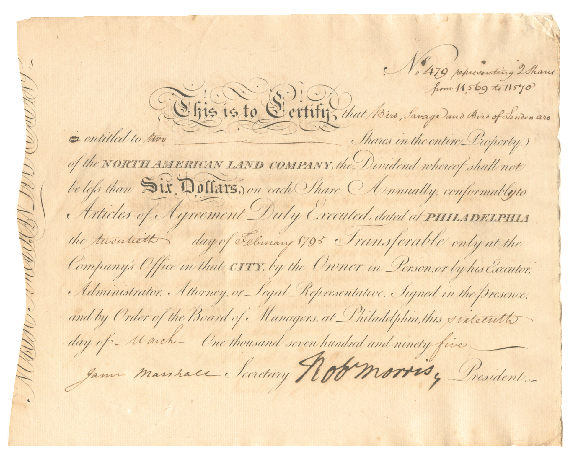 No. 479 representing 2 Shares
from 11,569 to 11570
This is to Certify, that Bird, Savage and Bird of London are
entitled to two Shares in the entire Property
of the NORTH AMERICAN LAND COMPANY, the Dividend whereof shall not
be less than Six Dollars, on each Share Annually, conformably to
Articles of Agreement Duly Executed, dated at PHILADELPHIA
the twentieth day of February 1795 Transferable only at the
Company's Office in that CITY, by the Owner in Person, or by his Executor,
Administrator, Attorney, or Legal Representative. Signed in the presence,
and by Order of the Board of Managers, at Philadelphia, this sixteenth
day of March One thousand seven hundred and ninety five
James Marshall Secretary Rob Morris, President.